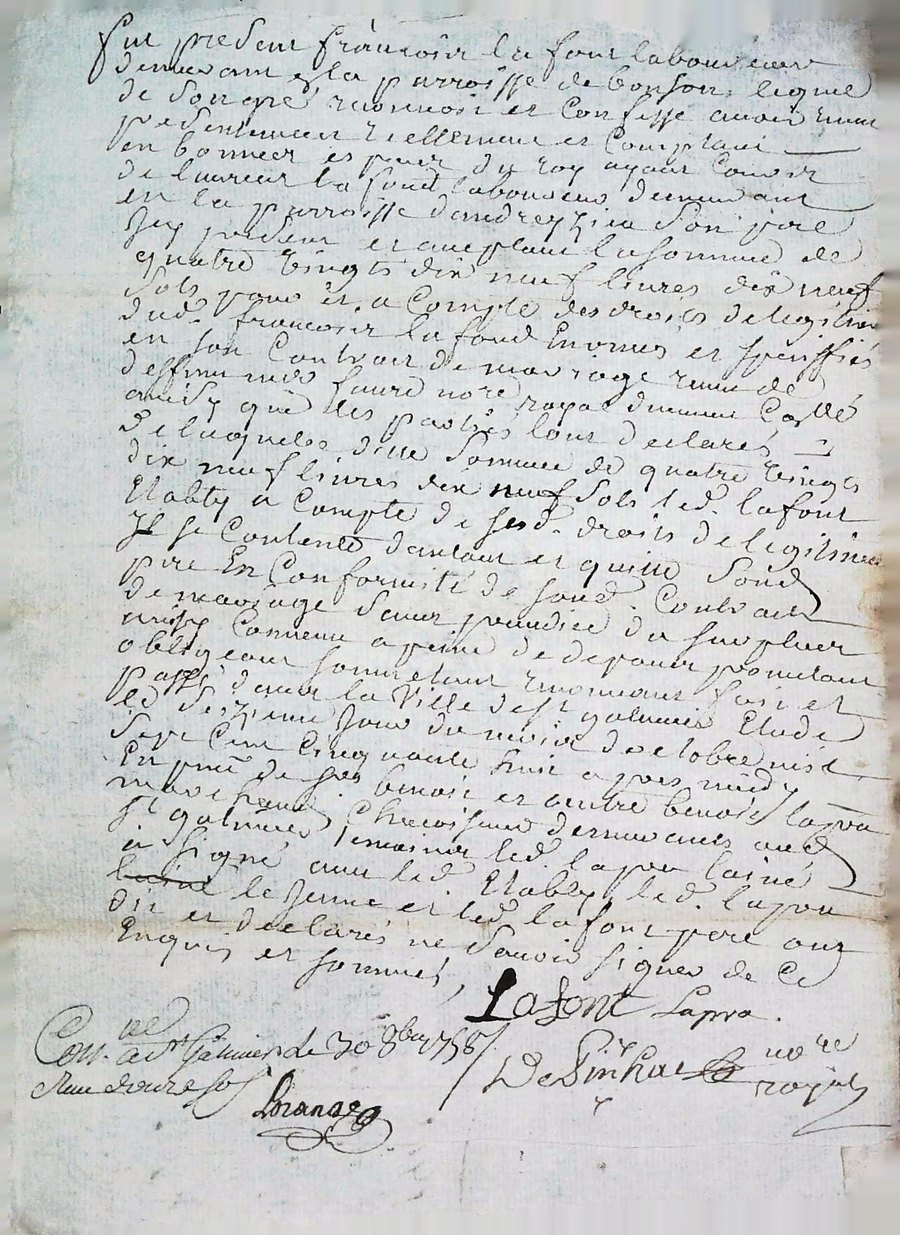 Fut present françois la font laboureur
demeurant en la parroisse de bonson, lequel
de son gré reconnoit et Confesse avoir reçeu
presentement reellement et Comptant
en bonnes especes du roy ayant Cours
de laurent la font laboureur demeurant
en la parroisse dandrezieu son pere
Icy present et aceptant la somme de
quatre vingts dix neuf livres dix neuf
sols pour et a Compte des droits de legitime
dud. françois la font Enoncés et speciffiés
en son Contrat de mariage receu de
deffunt me faure nore royal
ainsy que les parties lont declarés
de laquelle ditte somme de quatre vingts
dix neuf livres dix neuf sols led. lafont
Estably a Compte de sesd. droits de legitime
Il se Contente dautant et quitte sond
pere En Conformité de sond. Contrat
de mariage sans prejudice du surplus
ainsy Convenu a peine de depens promettant
obligeant soumettant renonçant fait et
passé dans la Ville de st galmier Etude
led. seizieme jour du mois doctobre mil
sept Cent Cinquante huit apres midy
En pnce de srs benoit et autre benoit lapra
st galmier temoins led. lapra lainé
a signé avec led. Estably, led. lapra
le jeune et led. lafont pere ont
dit et declarés ne sçavoir signer de Ce
Enquis et sommés,
Lafont Lapra.
Con. a st Galmier le 30 8bre 1758
nore
royal